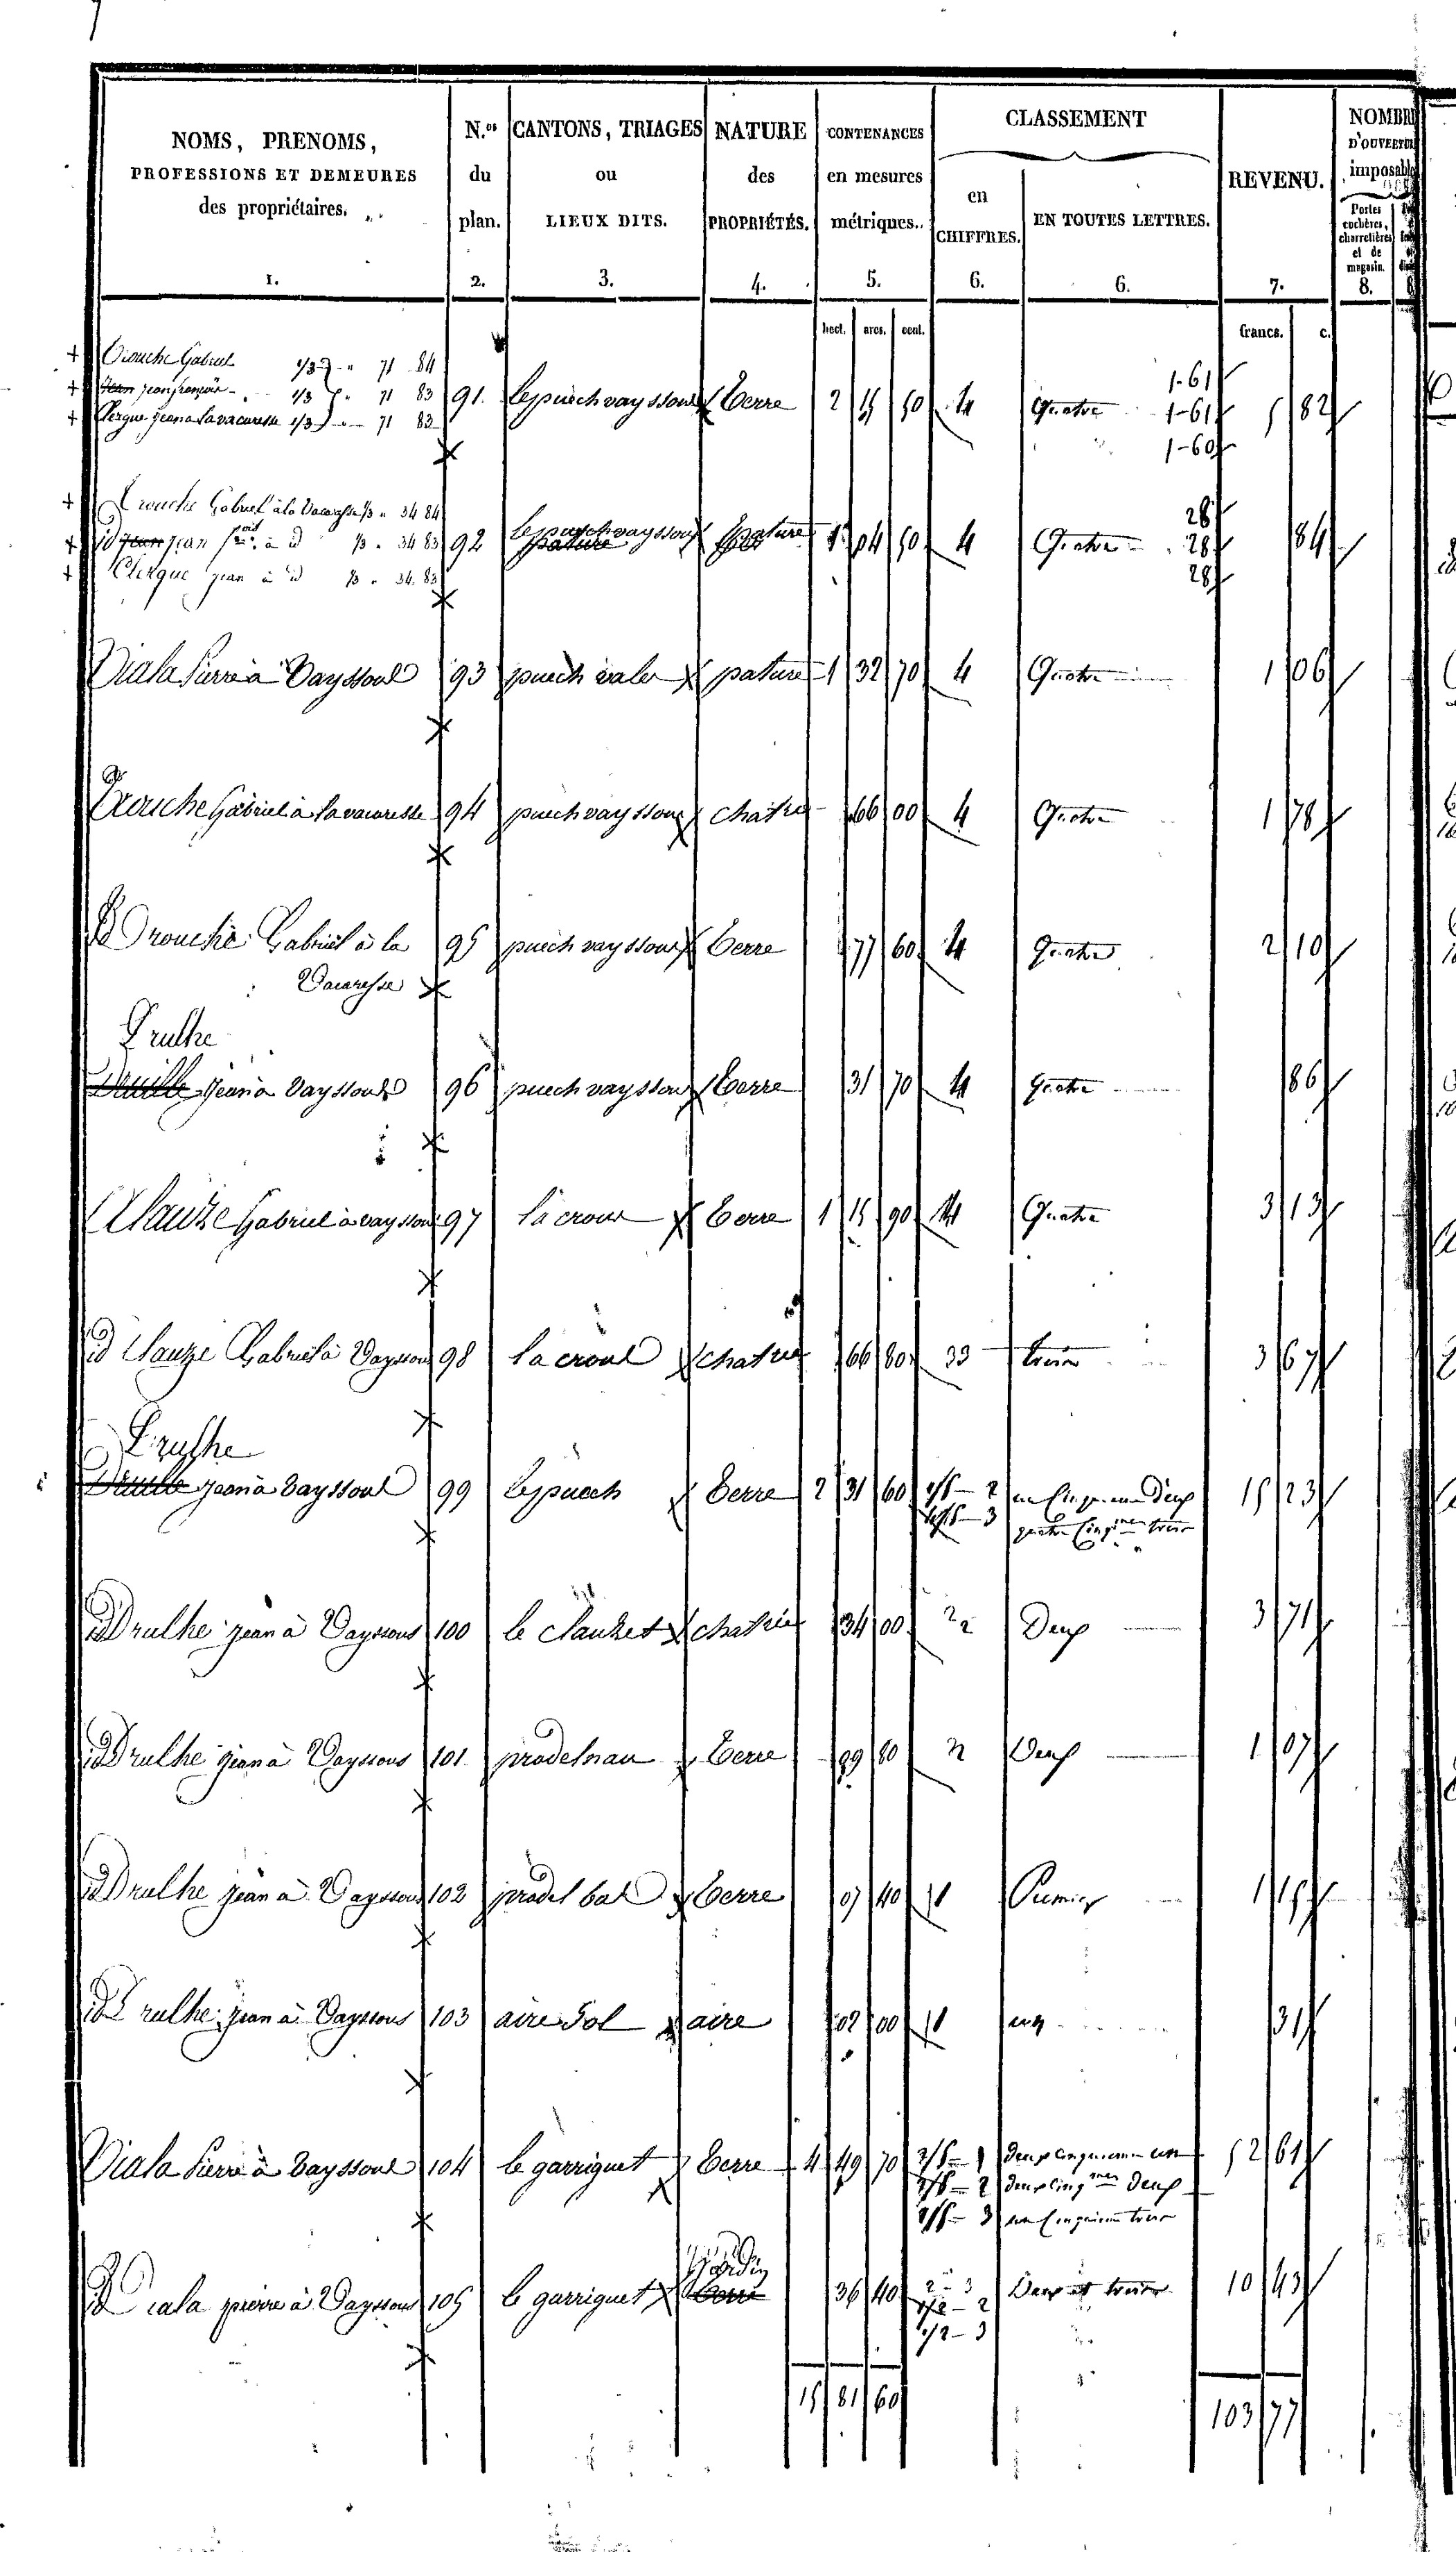 NOMS, PRENOMS,
PROFESSIONS ET DEMEURES
des propriétaires.
1.
N.os
du
plan.
2.
CANTONS, TRIAGES
ou
LIEUX DITS.
3.
NATURE
des
PROPRIÉTÉS.
4.
CONTENANCES
en mesures
métriques.
5.
CLASSEMENT
en
CHIFFRES.
6.
EN TOUTES LETTRES.
6.
REVENU.
7.
NOMBRE
D'OUVERTUR
imposable
Portes
cochères,
charretières
et de
magasin.
8.
hect. ares. cent. francs. c.
Gabriel 1/3 " 71 84 1-61
jean françois 1/3 " 71 83 91 le puech vayssous terre 2 15 50 4 Quatre 1-61 5 82
Clergue Jean a Lavacaresse 1/3 " 71 83 1-60
Trouche Gabriel à la Vacaresse 1/3 " 34 84 28
id jean jean fcois à id 1/3 " 34 83 92 le puech vayssous pature 1 04 50 4 Quatre 28 84
pature
Clergue jean à id 1/3 " 34 83 28
Viala Pierre à Vayssous 93 puech valer pature 1 32 70 4 Quatre 1 06
Trouche Gabriel à Lavacaresse 94 puech vayssous 66 00 4 Quatre 1 78
id Trouche Gabriel à la 95 puech vayssous terre 77 60 4 Quatre 2 10
Vacaresse
Drulhe
Druille Jean a Vayssous 96 puech vayssous terre 31 70 4 Quatre 86
Clauze Gabriel à vayssous 97 la crous terre 1 15 90 4 Quatre 3 13
id Clauze Gabriel à Vayssous 98 la crous 66 80 33 trois 3 67
Drulhe
Druille Jean à Vayssous 99 le puech terre 2 31 60 1/5 - 2 un Cinquieme Deux 15 23
4/5 - 3 quatre Cinqmes trois
id Drulhe jean à Vayssous 100 le Clauzet 34 00 22 Deux 3 71
id Drulhe jean à Vayssous 101 pradelnau terre 09 80 2 Deux 1 07
id Drulhe jean à Vayssous 102 pradel bas terre 07 40 1 Premier 1 15
id Drulhe jean à Vayssous 103 aire Sol aire 02 00 1 un 31
Viala Pierre à Vayssous 104 le garriguet terre 4 49 70 2/5 - 1 deux cinquieme un 52 61
2/5 - 2 deux Cinqmes Deux
1/5 - 3 un Cinquieme trois
jardin
id Viala pierre à Vayssous 105 le garriguet terre 36 40 2 - 3 Deux et trois 10 43
1/2 - 2
1/2 - 3
15 81 60 103 77